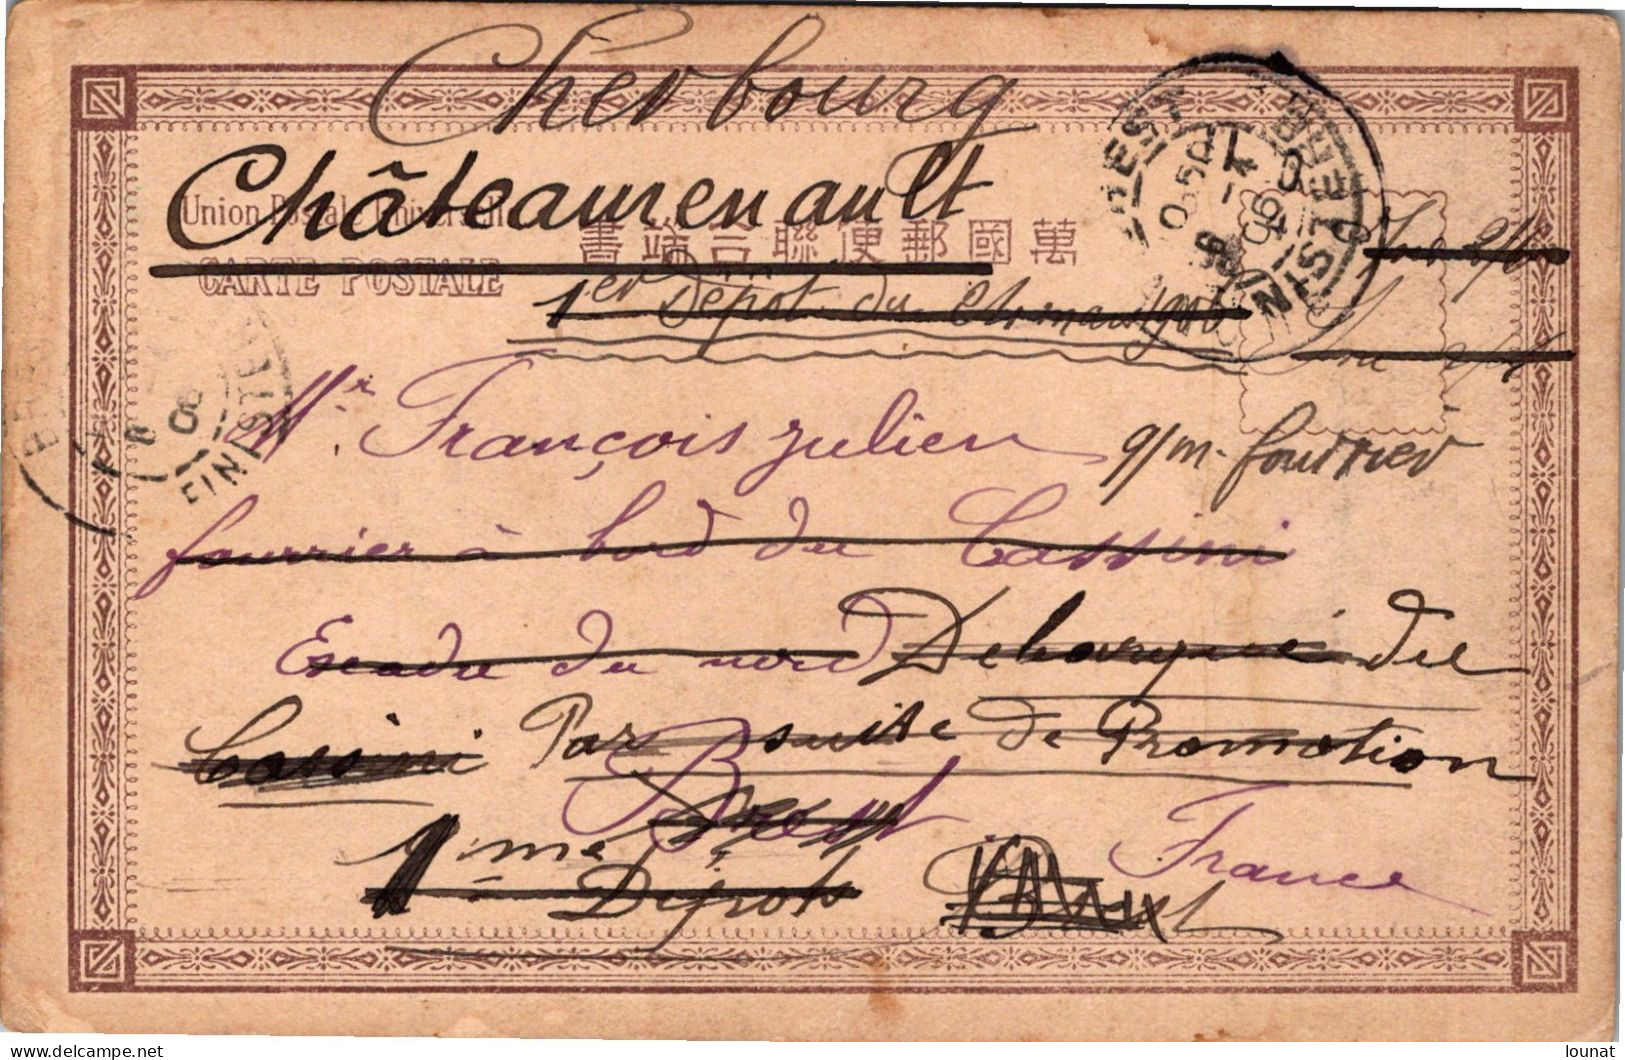 Cherbourg
Châteaurenault
Union Postale Universelle
萬國郵便聯合端書
CARTE POSTALE
1er Dépôt du
BREST
FINISTERE
BREST
FINISTERE
Mr. François Julien q/m. fourrier
fourrier à bord du Cassini
Escadre du nord Debarqué du
Cassini Par suite de Promotion
Brest
France
Dépôt Brest
delcampe.net
lounat